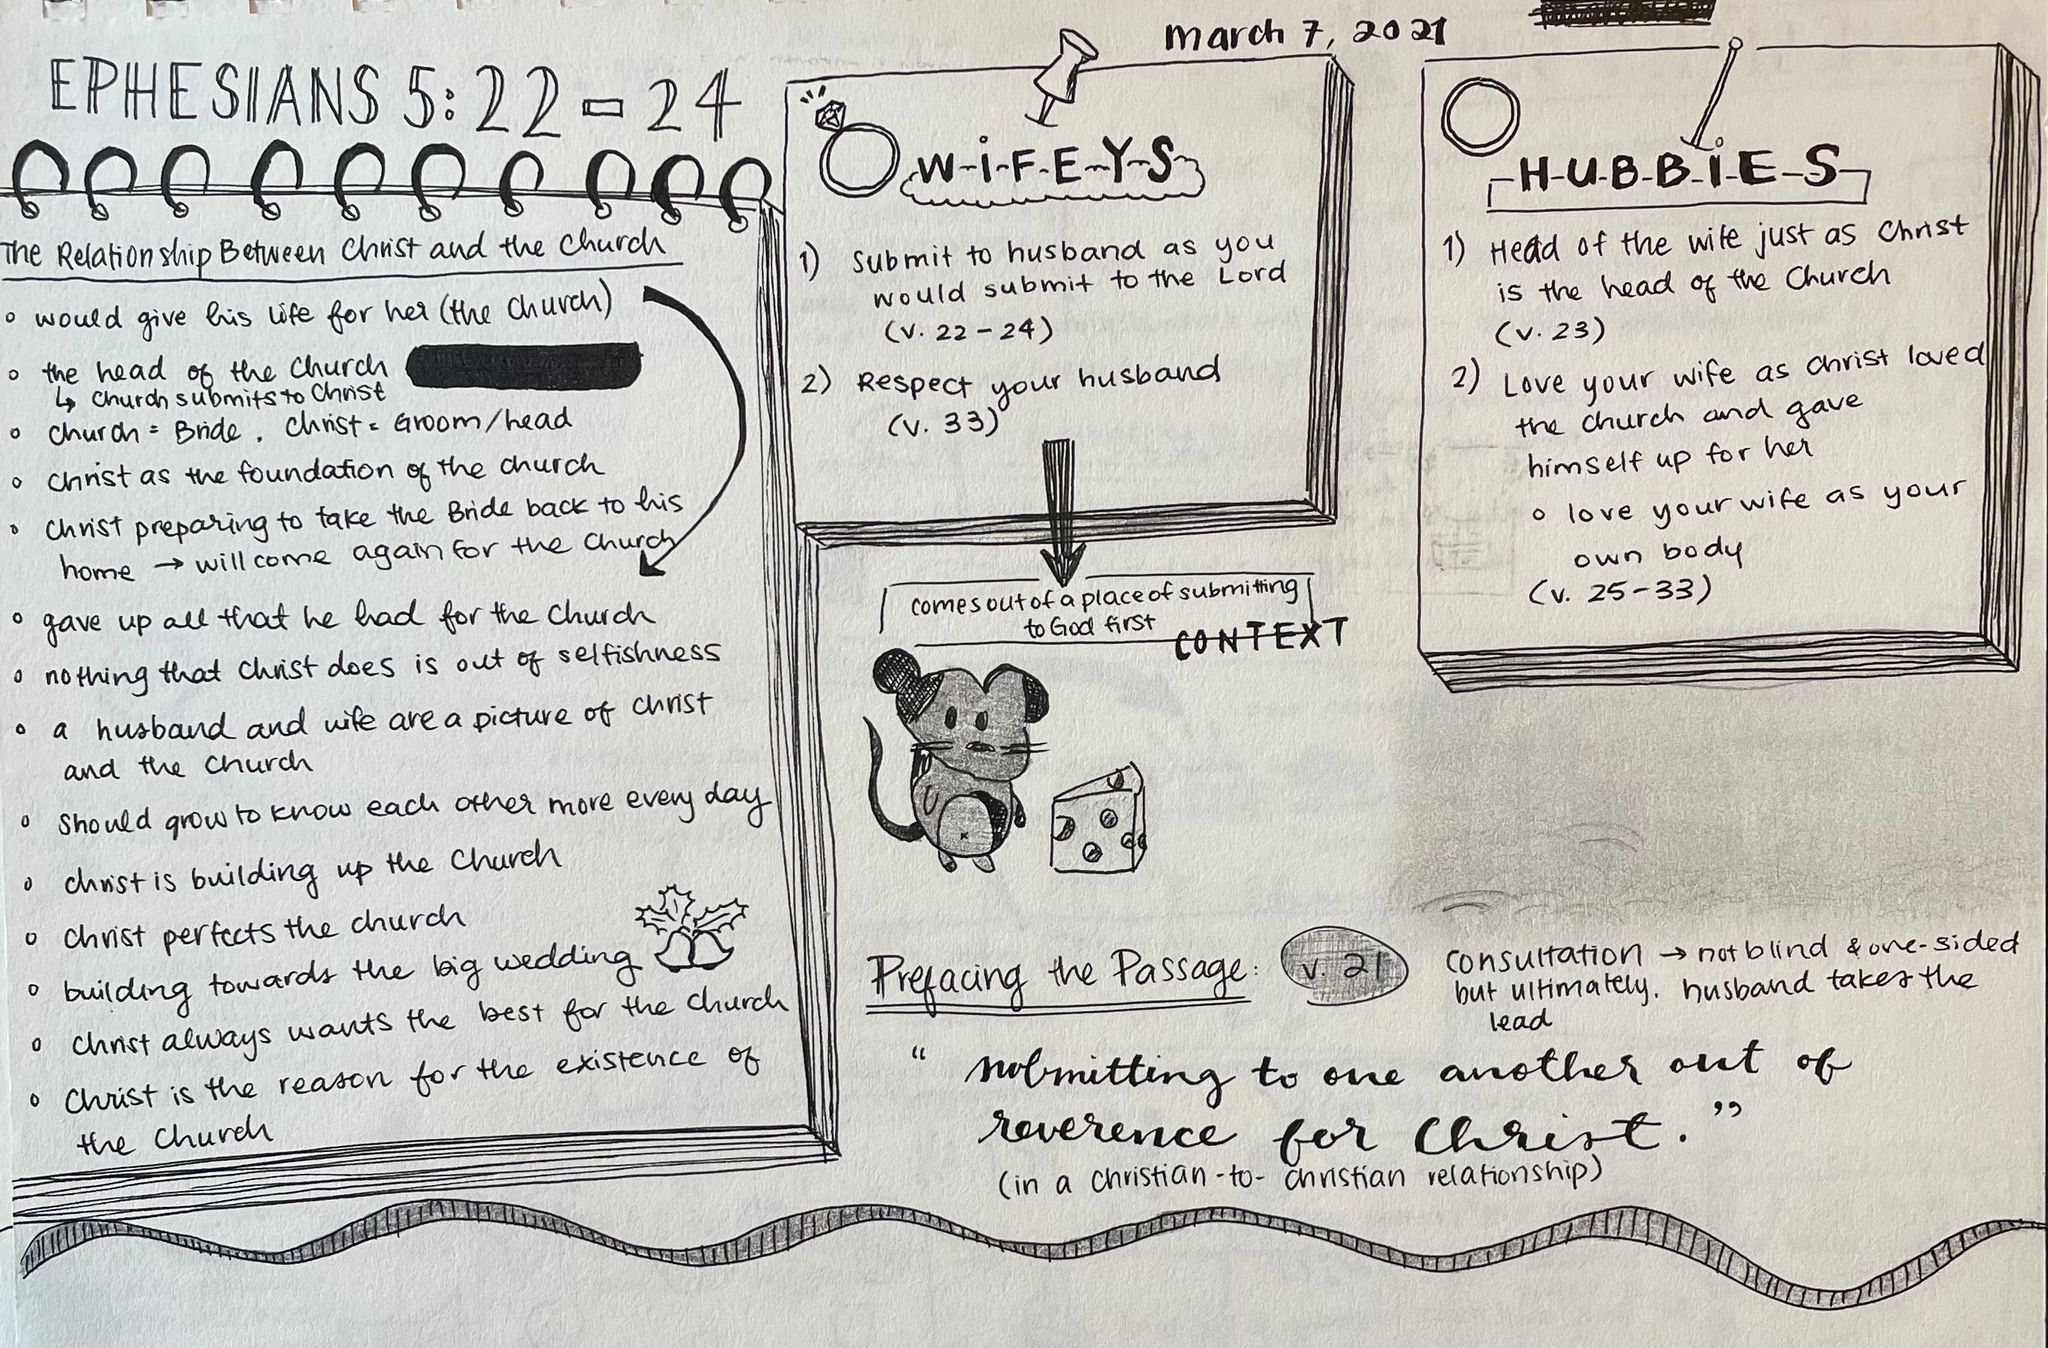 march 7, 2021
EPHESIANS 5:22-24
The Relationship Between Christ and the Church
would give his life for her (the Church)
the head of the Church
↳ Church submits to Christ
Church = Bride, Christ = Groom/head
Christ as the foundation of the church
Christ preparing to take the Bride back to his
home → will come again for the Church
gave up all that he had for the Church
nothing that Christ does is out of selfishness
a husband and wife are a picture of Christ
and the Church
should grow to know each other more every day
Christ is building up the Church
Christ perfects the church
building towards the big wedding
Christ always wants the best for the Church
Christ is the reason for the existence of
the Church
W-i-F-E-Y-S
1) Submit to husband as you
would submit to the Lord
(v. 22-24)
2) Respect your husband
(v. 33)
comes out of a place of submitting
to God first
CONTEXT
H-U-B-B-i-E-S
1) Head of the wife just as Christ
is the head of the Church
(v. 23)
2) Love your wife as Christ loved
the church and gave
himself up for her
love your wife as your
own body
(v. 25-33)
Prefacing the Passage: v. 21
consultation → not blind & one-sided
but ultimately, husband takes the
lead
“submitting to one another out of
reverence for Christ.”
(in a christian-to-christian relationship)